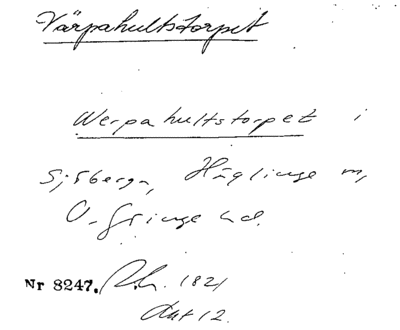 Värpahultstorpet
Werpahultstorpet i
Sjöberga, Häglinge sn,
V. Göinge hd.
Nr 8247. 1821
Akt 12.